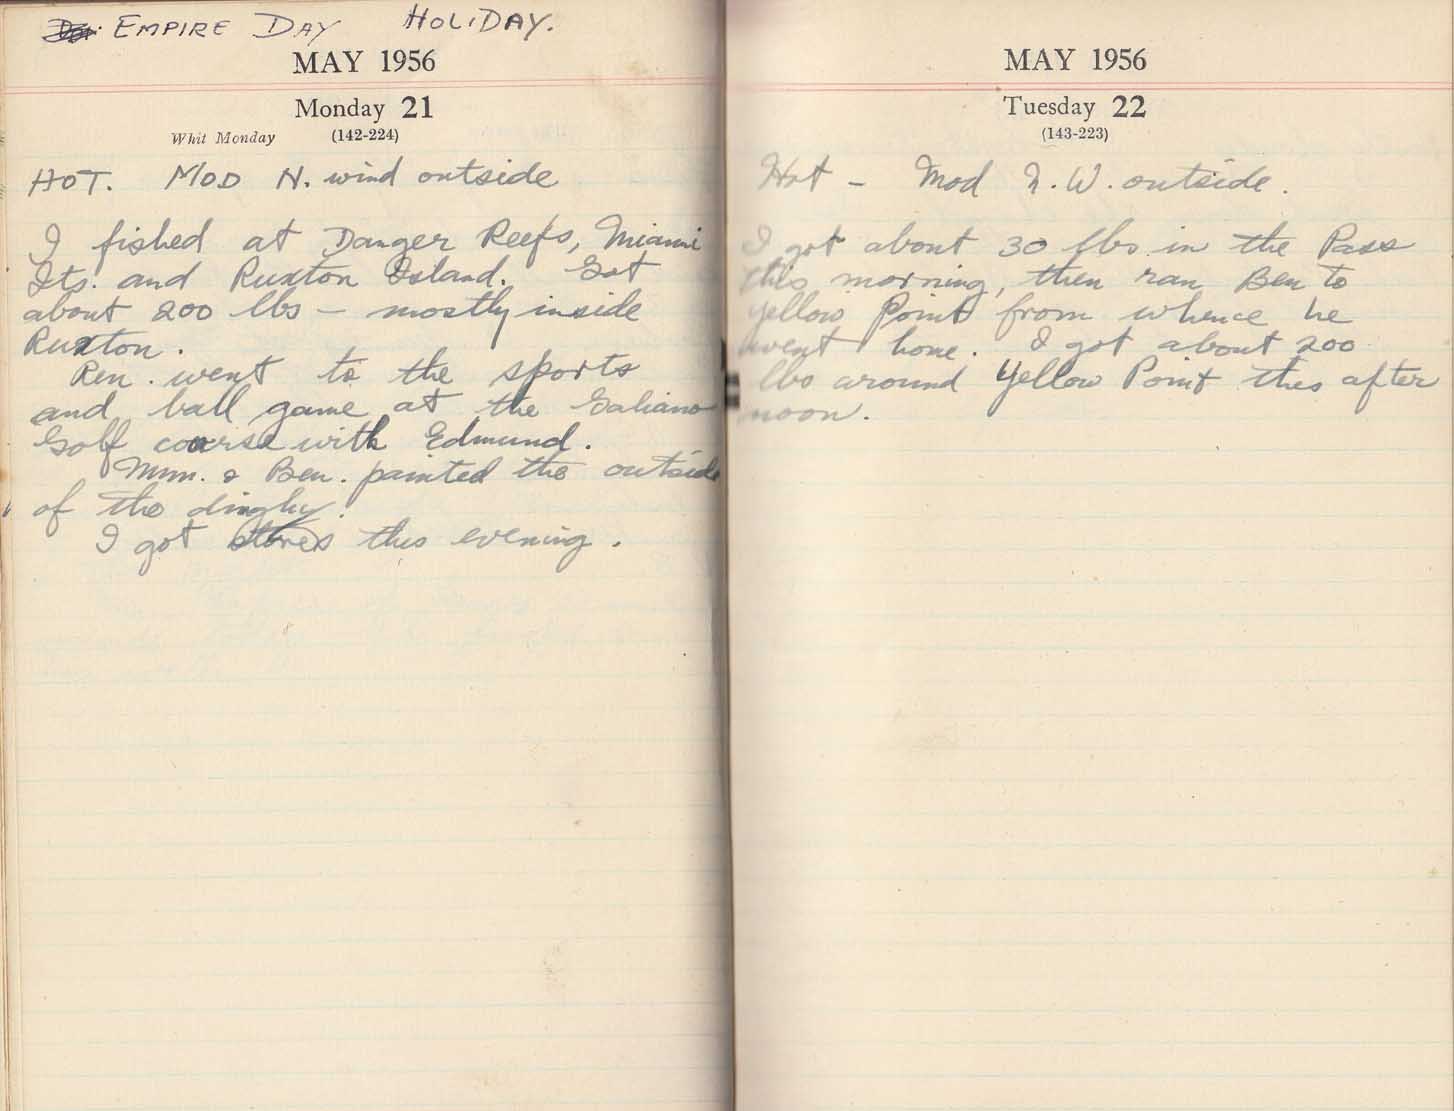 EMPIRE DAY HOLIDAY.
MAY 1956
Monday 21
Whit Monday (142-224)
HOT. MOD N. wind outside
I fished at Danger Reefs, Miami
Its. and Ruxton Island. Got
about 200 lbs - mostly inside
Ruxton.
Ren. went to the sports
and ball game at the Galiano
Golf course with Edmund.
Mum. & Ben. painted the outside
of the dinghy.
I got stores this evening.
MAY 1956
Tuesday 22
(143-223)
Hot - Mod N.W. outside.
I got about 30 lbs in the Pass
this morning, then ran Ben to
Yellow Point from whence he
went home. I got about 200
lbs around Yellow Point this after
noon.